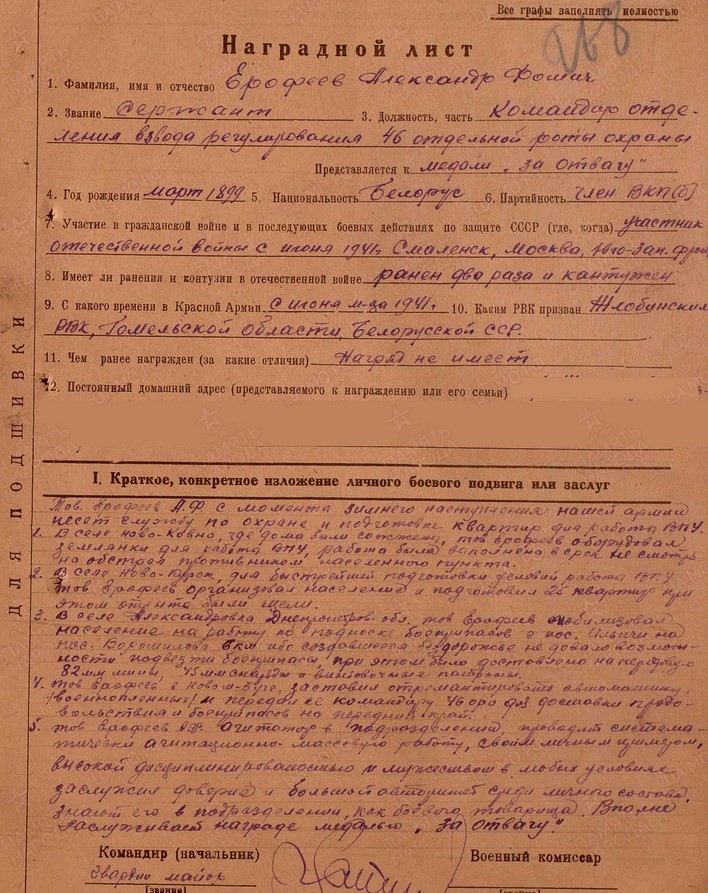 Все графы заполнять полностью
268
Наградной лист
1. Фамилия, имя и отчество Ерофеев Александр Фомич
2. Звание сержант 3. Должность, часть Командир отде-
ления взвода регулирования 46 отдельной роты охраны
Представляется к медали „за отвагу"
4. Год рождения март 1899 5. Национальность Белорус 6. Партийность член ВКП(б)
7. Участие в гражданской войне и в последующих боевых действиях по защите СССР (где, когда) участник
отечественной войны с июня 1941г. Смаленск, Москва, Юго-Зап. фрон
8. Имеет ли ранения и контузии в отечественной войне ранен два раза и кантужен
9. С какого времени в Красной Армии С июня м-ца 1941г. 10. Каким РВК призван Жлобинским
РВК, Гомельской области, Белорусской ССР.
11. Чем ранее награжден (за какие отличия) Наград не имеет
12. Постоянный домашний адрес (представляемого к награждению или его семьи)
ДЛЯ ПОДШИВКИ
I. Краткое, конкретное изложение личного боевого подвига или заслуг
Тов. Ерофеев А.Ф с момента зимнего наступления нашей армии
несет службу по охране и подготовке квартир для работы ВПУ.
1. В селе Ново-, где дома были сожжены, тов Ерофеев оборудовал
землянки для работы ВПУ, работа была выполнена в срок не смотря
на обстрел противником населенного пункта.
2. В селе Ново-, для быстрейшей подготовки условий работы ВПУ
тов Ерофеев организовал население и подготовил 25 квартир при
этом открыто были щели.
3. В селе Александровка Днепропетров. обл. тов Ерофеев мобилизовал
население на работу по подноске боеприпасов с пос. Ильичи на
пос. Ворошилова 8 км ибо создавшееся бездорожье не давало возмож-
ности подвезти боеприпасы, при этом было доставлено на передовую
82 мм мины, 45 мм снаряды и винтовочные патроны.
4. Тов Ерофеев в Новом-Буге, заставил отремантировать автомашину
/военнопленных/ и передал ее командару для доставки продо-
вольствия и боеприпасов на передний край.
5. Тов Ерофеев А.Ф. агитатор в подразделении, проводит система-
тически агитационно-массовую работу, своим личным примером,
высокой дисциплинированостью и мужеством в любых условиях
заслужил доверие и большой авторитет среди личного состава.
Знают его в подразделении, как боевого товарища. Вполне
заслуживает награде медалью „за отвагу".
Командир (начальник) Военный комиссар
Гвардии майор
(звание)